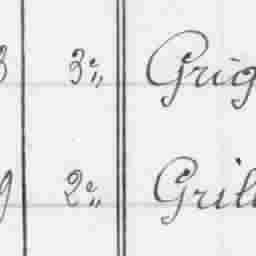 3 3e,, Grig
9 2e,, Gril